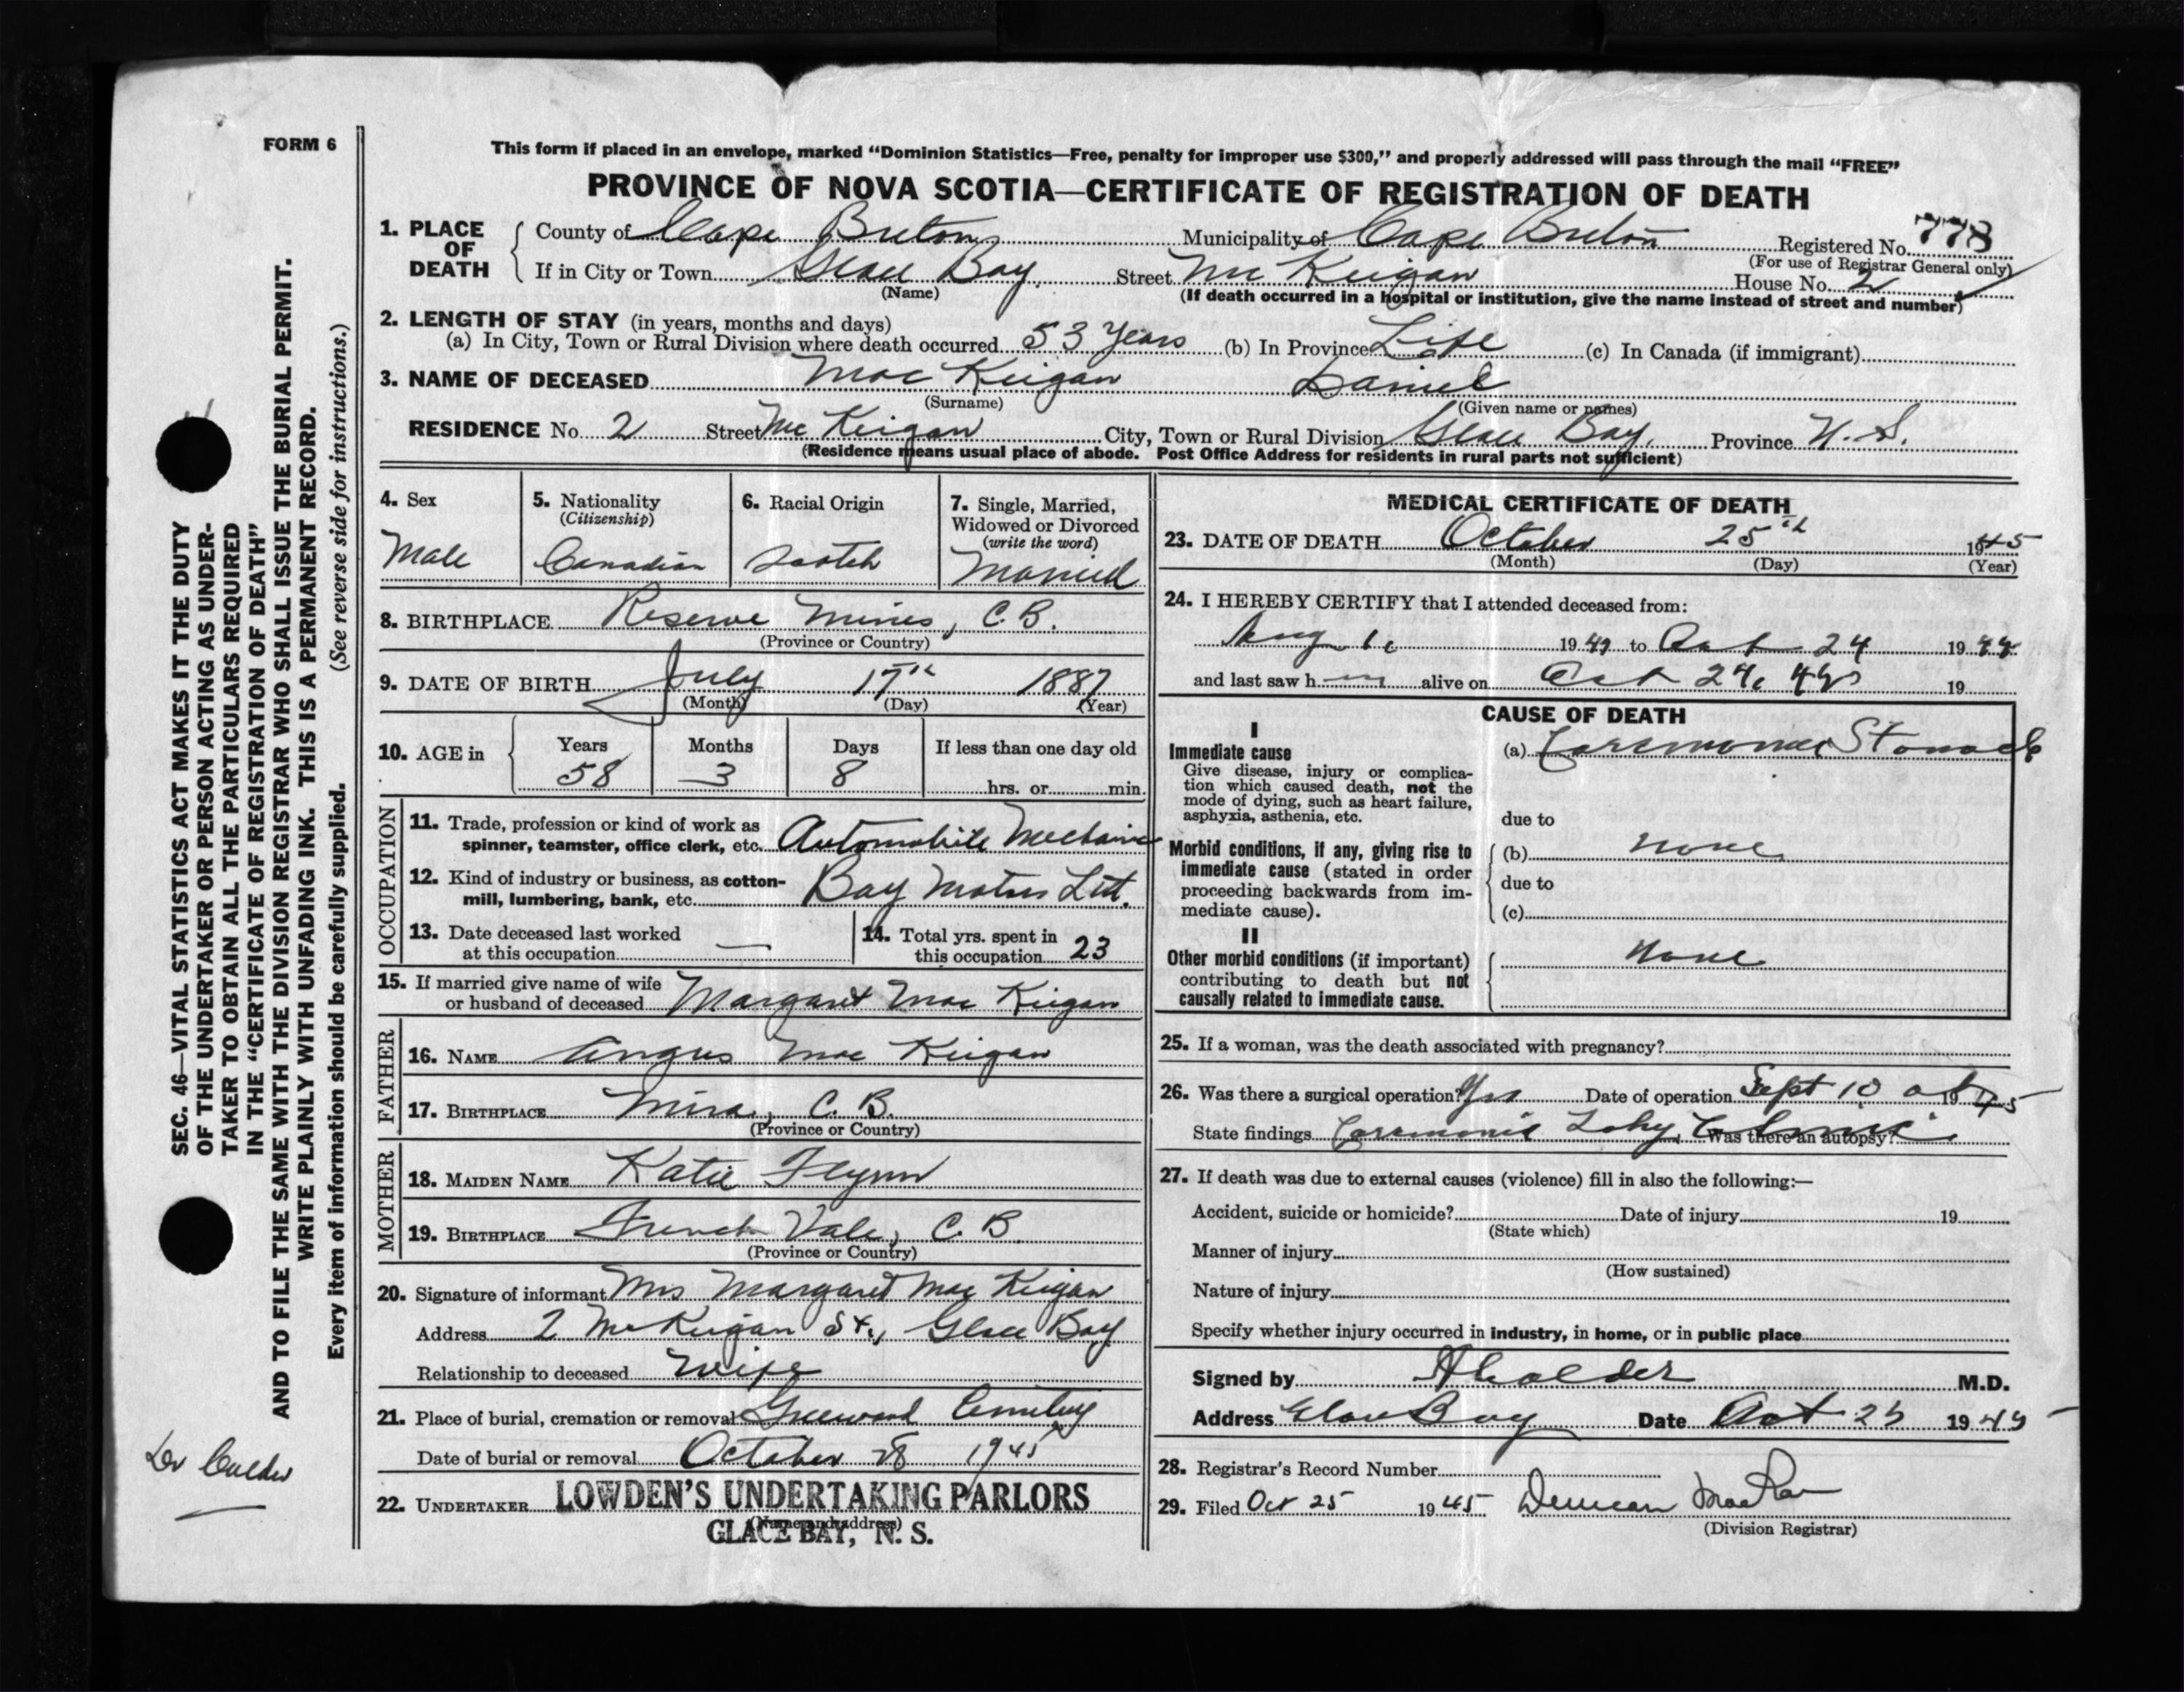 FORM 6
This form if placed in an envelope, marked “Dominion Statistics—Free, penalty for improper use $300,” and properly addressed will pass through the mail “FREE”
PROVINCE OF NOVA SCOTIA—CERTIFICATE OF REGISTRATION OF DEATH
1. PLACE OF DEATH County of Cape Breton Municipality of Cape Breton Registered No. 778
(For use of Registrar General only)
If in City or Town Glace Bay Street McKeigan House No. 2
(Name) (If death occurred in a hospital or institution, give the name instead of street and number)
2. LENGTH OF STAY (in years, months and days)
(a) In City, Town or Rural Division where death occurred 53 Years (b) In Province Life (c) In Canada (if immigrant)
3. NAME OF DECEASED MacKeigan Daniel
(Surname) (Given name or names)
RESIDENCE No. 2 Street McKeigan City, Town or Rural Division Glace Bay, Province N. S.
(Residence means usual place of abode. Post Office Address for residents in rural parts not sufficient)
4. Sex
Male
5. Nationality
(Citizenship)
Canadian
6. Racial Origin
Scotch
7. Single, Married,
Widowed or Divorced
(write the word)
Married
8. BIRTHPLACE Reserve Mines, C. B.
(Province or Country)
9. DATE OF BIRTH July 17th 1887
(Month) (Day) (Year)
10. AGE in Years Months Days If less than one day old
58 3 8 hrs. or min.
OCCUPATION
11. Trade, profession or kind of work as
spinner, teamster, office clerk, etc. Automobile Mechanic
12. Kind of industry or business, as cotton-
mill, lumbering, bank, etc. Bay Motors Ltd.
13. Date deceased last worked
at this occupation —
14. Total yrs. spent in
this occupation 23
15. If married give name of wife
or husband of deceased Margaret MacKeigan
FATHER
16. NAME Angus MacKeigan
17. BIRTHPLACE Mira, C. B.
(Province or Country)
MOTHER
18. MAIDEN NAME Katie Flynn
19. BIRTHPLACE French Vale, C. B.
(Province or Country)
20. Signature of informant Mrs Margaret MacKeigan
Address 2 McKeigan St., Glace Bay
Relationship to deceased Wife
21. Place of burial, cremation or removal Greenwood Cemetery
Date of burial or removal October 28 1945
22. UNDERTAKER LOWDEN'S UNDERTAKING PARLORS
(Name and address)
GLACE BAY, N. S.
MEDICAL CERTIFICATE OF DEATH
23. DATE OF DEATH October 25th 1945
(Month) (Day) (Year)
24. I HEREBY CERTIFY that I attended deceased from:
Aug 19 to Oct 24 19
and last saw h im alive on Oct 24, 19
CAUSE OF DEATH
I
Immediate cause
Give disease, injury or complica-
tion which caused death, not the
mode of dying, such as heart failure,
asphyxia, asthenia, etc.
(a) Carcinoma Stomach
due to
Morbid conditions, if any, giving rise to
immediate cause (stated in order
proceeding backwards from im-
mediate cause).
(b) none
due to
(c)
II
Other morbid conditions (if important)
contributing to death but not
causally related to immediate cause.
none
25. If a woman, was the death associated with pregnancy?
26. Was there a surgical operation? Yes Date of operation Sept 10 at 1945
State findings Lahy Clinic Was there an autopsy?
27. If death was due to external causes (violence) fill in also the following:—
Accident, suicide or homicide? Date of injury 19
(State which)
Manner of injury
(How sustained)
Nature of injury
Specify whether injury occurred in industry, in home, or in public place
Signed by M.D.
Address Glace Bay Date Oct 25 1945
28. Registrar's Record Number
29. Filed Oct 25 1945 Duncan MacRae
(Division Registrar)
SEC. 46—VITAL STATISTICS ACT MAKES IT THE DUTY
OF THE UNDERTAKER OR PERSON ACTING AS UNDER-
TAKER TO OBTAIN ALL THE PARTICULARS REQUIRED
IN THE “CERTIFICATE OF REGISTRATION OF DEATH”
AND TO FILE THE SAME WITH THE DIVISION REGISTRAR WHO SHALL ISSUE THE BURIAL PERMIT.
WRITE PLAINLY WITH UNFADING INK. THIS IS A PERMANENT RECORD.
Every item of information should be carefully supplied. (See reverse side for instructions.)
Dr Calder